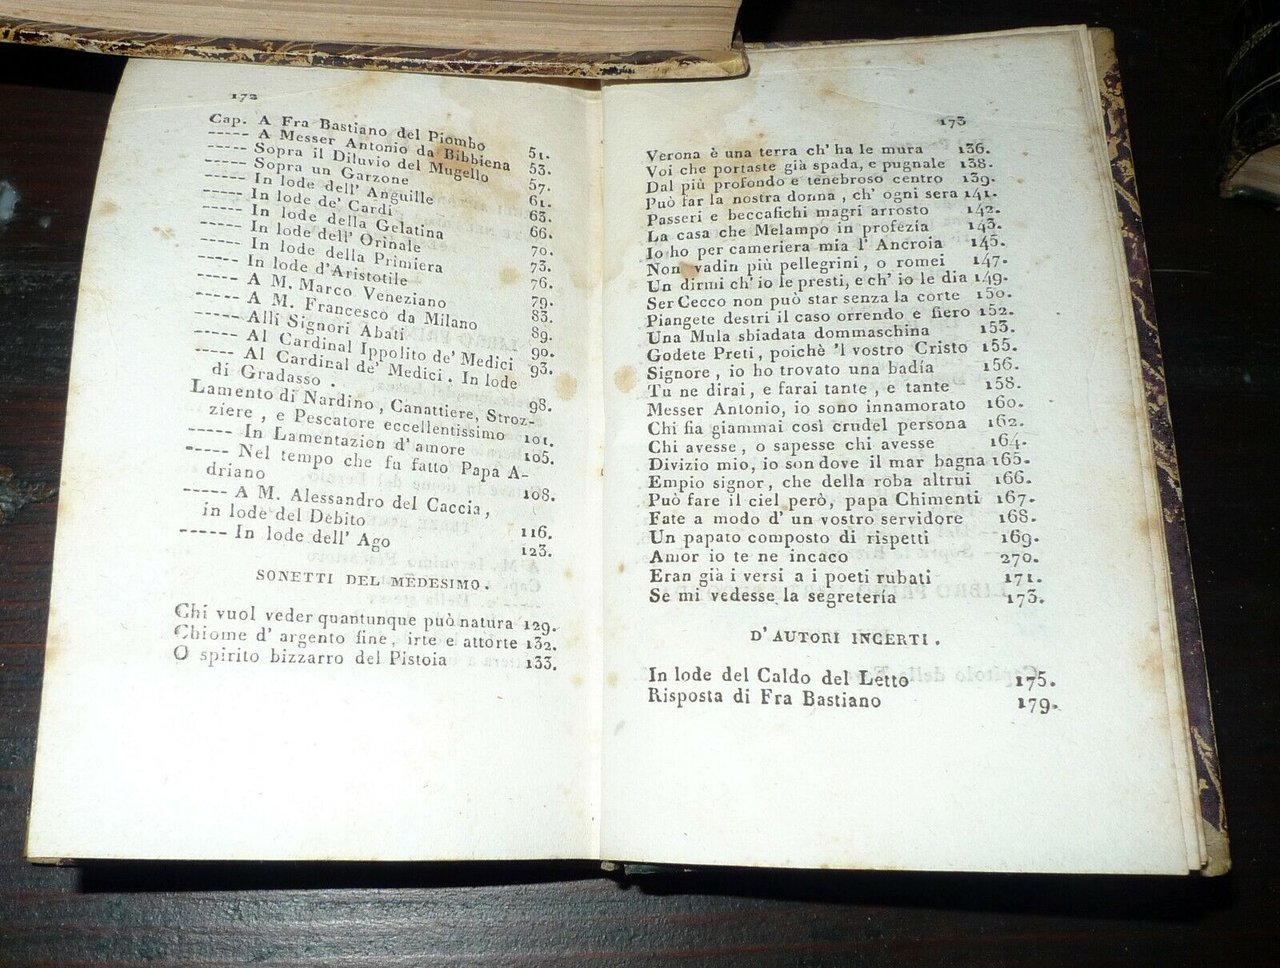 172
Cap. A Fra Bastiano del Piombo 51.
----- A Messer Antonio da Bibbiena 53.
----- Sopra il Diluvio del Mugello 57.
----- Sopra un Garzone 61.
----- In lode dell' Anguille 63.
----- In lode de' Cardi 66.
----- In lode della Gelatina 70.
----- In lode dell' Orinale 73.
----- In lode della Primiera 76.
----- In lode d'Aristotile 79.
----- A M. Marco Veneziano 83.
----- A M. Francesco da Milano 89.
----- Alli Signori Abati 90.
----- Al Cardinal Ippolito de' Medici 93.
----- Al Cardinal de' Medici. In lode
di Gradasso. 98.
Lamento di Nardino, Canattiere, Stroz-
ziere, e Pescatore eccellentissimo 101.
----- In Lamentazion d'amore 105.
----- Nel tempo che fu fatto Papa A-
driano 108.
----- A M. Alessandro del Caccia,
in lode del Debito 116.
----- In lode dell' Ago 123.
SONETTI DEL MEDESIMO.
Chi vuol veder quantunque può natura 129.
Chiome d' argento fine, irte e attorte 132.
O spirito bizzarro del Pistoia 133.
173
Verona è una terra ch' ha le mura 136.
Voi che portaste già spada, e pugnale 138.
Dal più profondo e tenebroso centro 139.
Può far la nostra donna, ch' ogni sera 141.
Passeri e beccafichi magri arrosto 142.
La casa che Melampo in profezia 143.
Io ho per cameriera mia l' Ancroia 145.
Non vadin più pellegrini, o romei 147.
Un dirmi ch' io le presti, e ch' io le dia 149.
Ser Cecco non può star senza la corte 150.
Piangete destri il caso orrendo e fiero 152.
Una Mula sbiadata dommaschina 153.
Godete Preti, poichè 'l vostro Cristo 155.
Signore, io ho trovato una badía 156.
Tu ne dirai, e farai tante, e tante 158.
Messer Antonio, io sono innamorato 160.
Chi fia giammai così crudel persona 162.
Chi avesse, o sapesse chi avesse 164.
Divizio mio, io son dove il mar bagna 165.
Empio signor, che della roba altrui 166.
Può fare il ciel però, papa Chimenti 167.
Fate a modo d' un vostro servidore 168.
Un papato composto di rispetti 169.
Amor io te ne incaco 270.
Eran già i versi a i poeti rubati 171.
Se mi vedesse la segretería 173.
D'AUTORI INCERTI.
In lode del Caldo del Letto 175.
Risposta di Fra Bastiano 179.